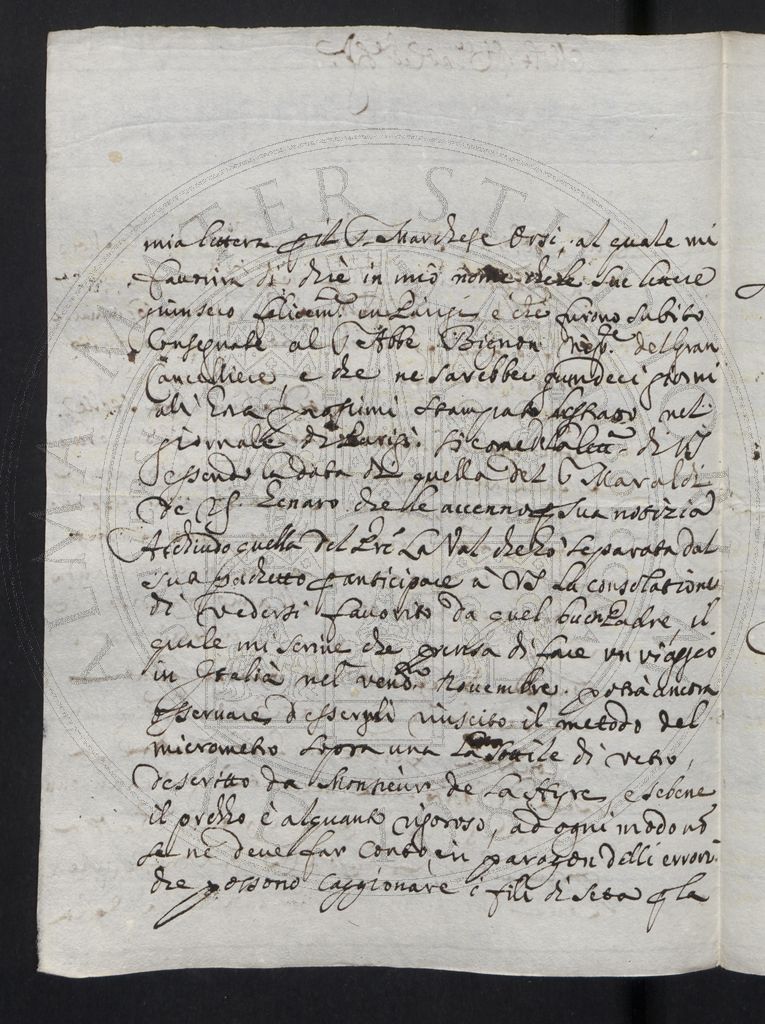 mia lettera p il S. Marchese Orsi, al quale mi
favorirà di dire in mio nome che le sue lettere
giunsero felicem.te in Parigi e che furono subito
consegnate al S. Abbe Bignon nep.te del gran
Cancelliere, e che ne sarebbe quindeci giorni
prossimi stampato nel
giornale di Parigi. di VS
essendo la data di quella del S. Maraldi
de 25. Genaro che le accenno p sua notizia
Acchiudo quella del Pre La Val che ho separata dal
suo pachetto p anticipare à VS la consolatione
di vedersi favorito da quel buon Padre, il
quale mi scrive che pensa di fare un viaggio
in Italia nel vend.o Novembre. potrà ancora
osservare d'essergli riuscito il metodo del
micrometro sopra una sottile di vetro,
descritto da Monsieur de La Hyre, e sebene
il prezzo è alquanto rigoroso, ad ogni modo nõ
se ne deve far conto in paragon delli errori
che possono caggionare i fili di seta p la
ALMA MATER STUDIORUM